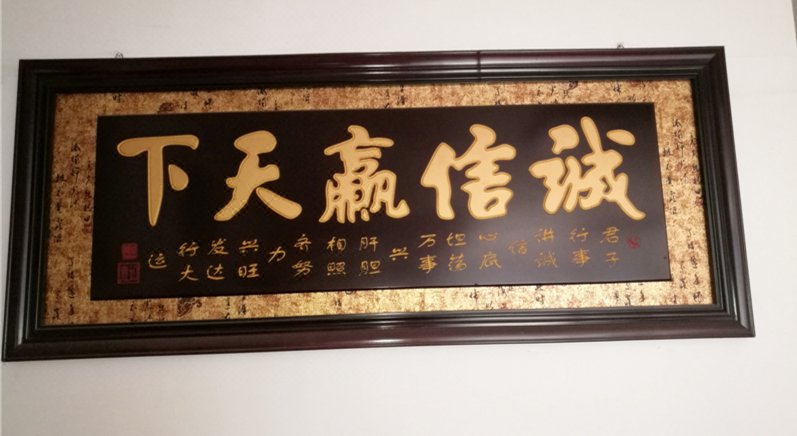 诚信赢天下
君子
行事
讲诚
信
心底
坦荡
万事
兴
肝胆
相照
齐努
力
兴旺
发达
行大
运